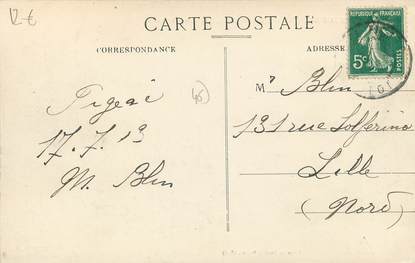 12 €
CARTE POSTALE
CORRESPONDANCE
ADRESSE
REPUBLIQUE FRANÇAISE
5c POSTES
45
Mr Blin
131 rue Solferino
Lille
(Nord)
17.7.13
M. Blin